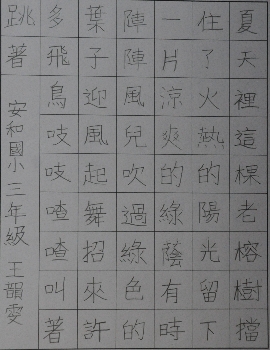 夏天裡這棵老榕樹擋
住了火熱的陽光留下
一片涼爽的綠蔭有時
陣陣風兒吹過綠色的
葉子迎風起舞招來許
多飛鳥吱吱喳喳叫著
跳著 安和國小三年級 王韻雯